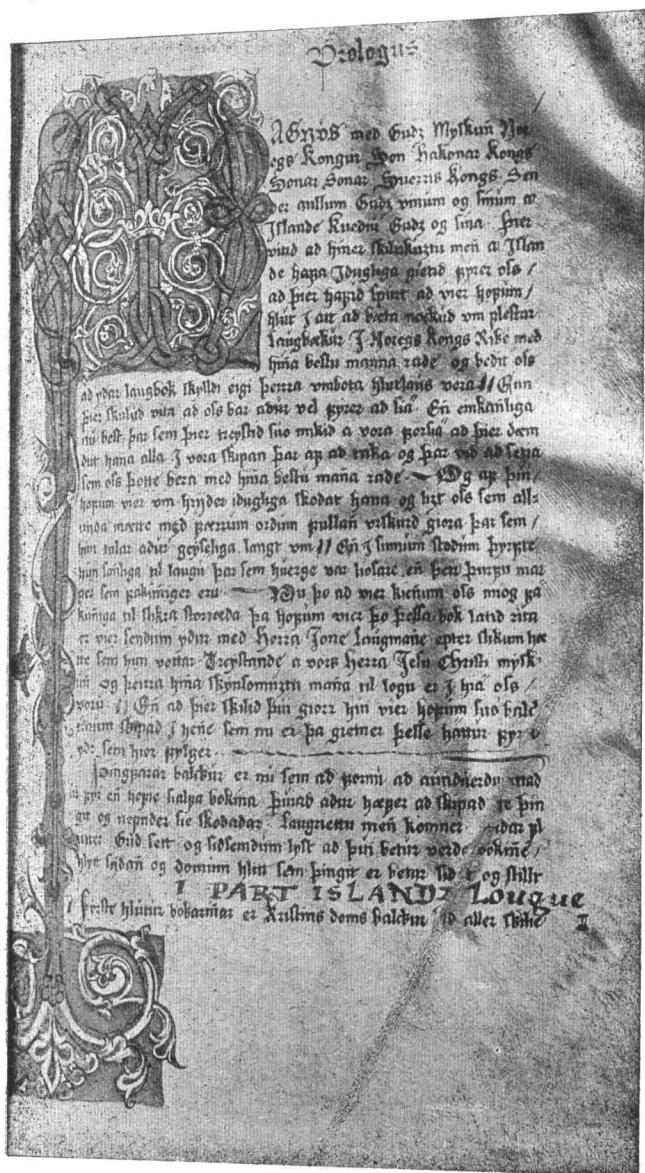 Prologus
MAGNVS med Gudz Myskun Nor
egs Kongur Son Hakonar Kongs
Sonar Sonar Suerris Kongs Sen
der aullum Gudz vinum og sinum a
Jslande Kuediu Gudz og sina. Þier
vitid ad hiner skilrikuztu men a Jslan
de hafa Jdugliga gietid fyrer oss /
ad þier hafid spurt ad vier hofum /
hlut J att ad bæta nockud vm flestar
Laugbækur J Noregs Kongs Rike med
hina bestu manna rade og bedit oss
ad ydar laugbok skylldi eigi þeirra vmbota hlutlaus vera // Enn
þier skulud vita ad oss bar adur vel fyrer ad sia En einkanliga
nu best þar sem þier treystid suo mikid a vora forsia ad þier dæm
dut hana alla J vora skipan þar af ad taka og þar vid ad setia
sem oss þotte bera med hina bestu mana rade Og af þui /
hofum vier vm hrijder idugliga skodat hana og lizt oss sem all=
unda mætte med færrum ordum fullan vrskurd giora þat sem /
hun talar adur geyseliga langt vm // En J sumum stodum þyrfte
hun sanliga til laugu þar sem huerge var liosare en þen þurfu mar
ger sem fakunniger eru Nu þo ad vier kienum oss miog fa
kunniga til slikra storræda þa hofum vier þo þessa bok latid rita
er vier sendum ydur med Herra Jone Laugmane epter slikum hæ
tte sem hun vottar Treystande a vors Herra Jesu Christi mysk=
un og þeirra hina skynsomuztu mana til logu er J hia oss /
voru // En ad þier skilid þui giorr huat vier hofum suo balk
rænum skipad J hene sem nu er þa greiner þesse hattur fyr
ydr sem hier fylger.
Þingfarar balckur er nu sem ad fornu ad aunduerdu ritad
fyr en hefie sialfa bokina Þuiad adur hæfer ad skipad sie þin
git og nefnder sie skodadar Laugrettu men komner
Grid sett og sidsemdum lyst ad þui betur verde bokine /
hlytt sijdan og domum hlitt sem þingit er betur sidat og stillt
I PART ISLANDZ Lougue
Fyrste hlutur bokarinar er Kristins doms balckur ad aller skilie II